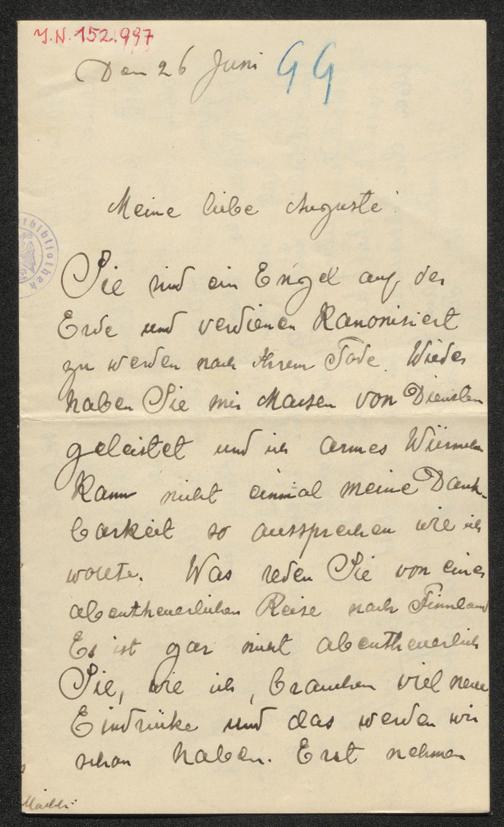 J.N. 152.997
Den 26 Juni 99
Meine liebe Auguste!
bibliothek
Sie sind ein Engel auf der
Erde und verdienen Kanonisiert
zu werden nach Ihrem Tode. Wieder
haben Sie mir Massen von Diensten
geleistet und ich armes Würmchen
Kann nicht einmal meine Dank-
barkeit so aussprechen wie ich
wollte. Was reden Sie von einer
abentheuerlichen Reise nach Finnland
Es ist gar nicht abentheuerlich
Sie, wie ich, brauchen viel neue
Eindrücke und das werden wir
schon haben. Erst nehmen